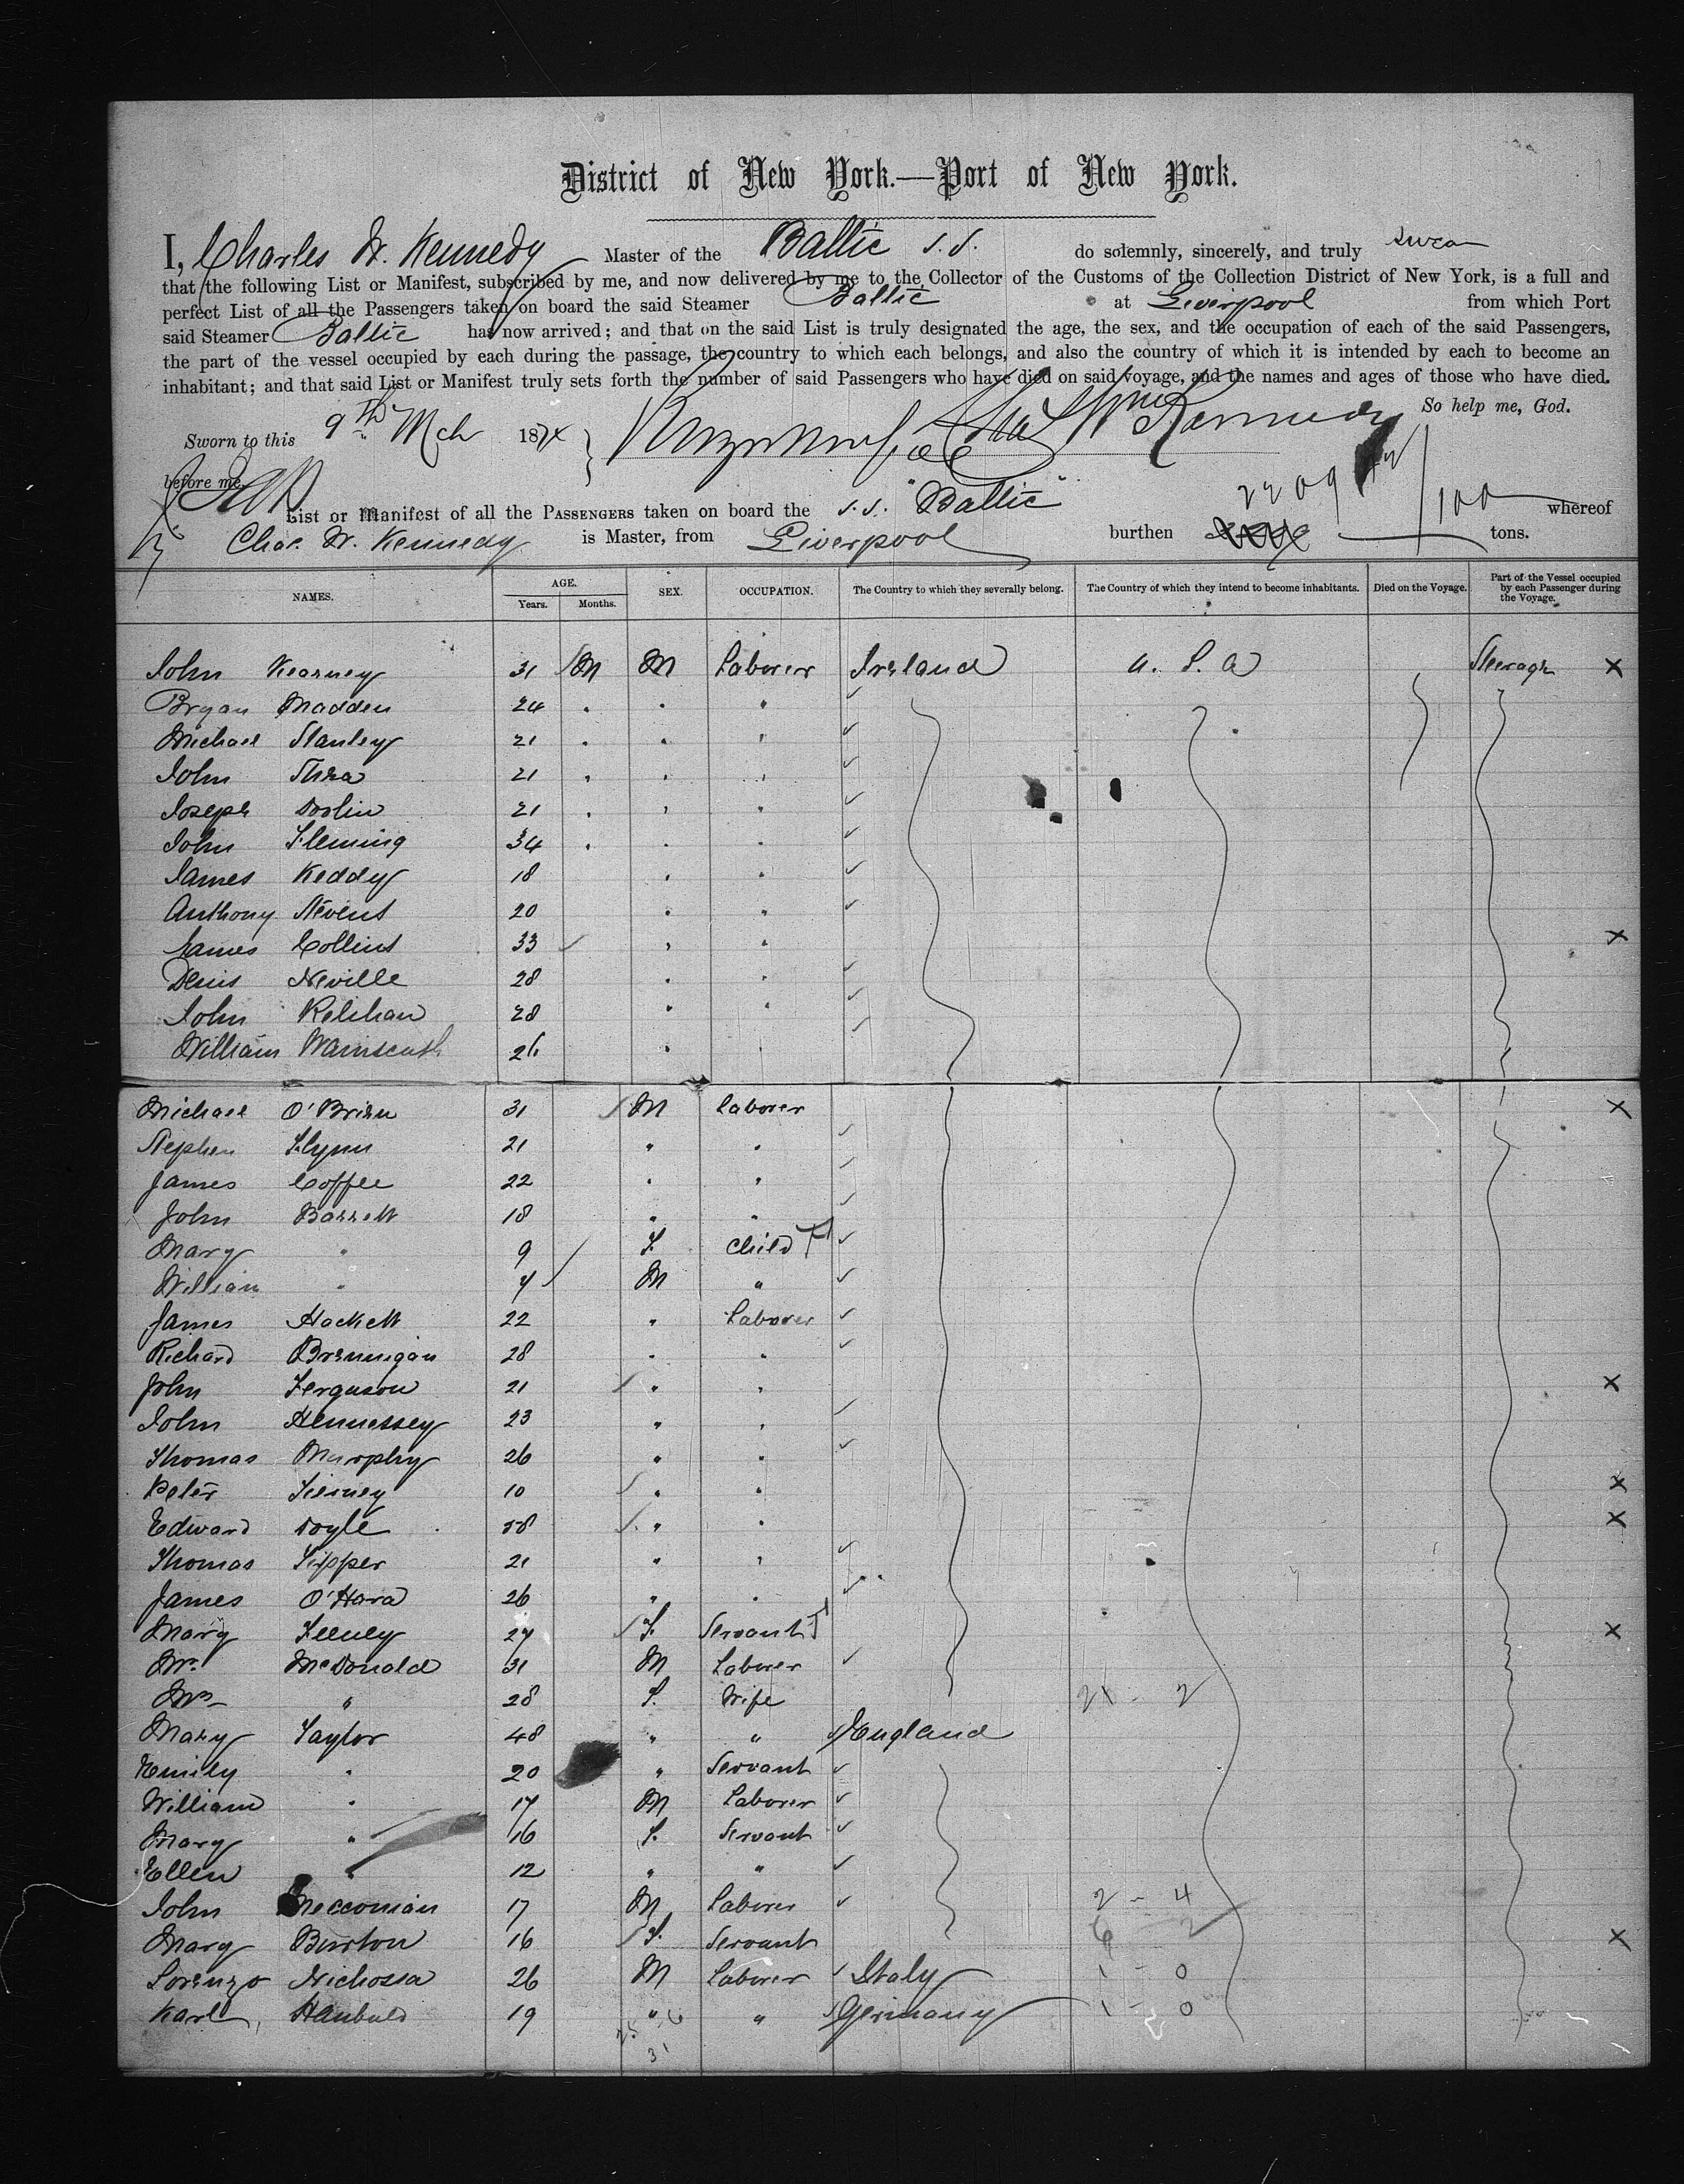 District of New York.—Port of New York.
I, Charles W. Kennedy Master of the Baltic S.S. do solemnly, sincerely, and truly swear
that the following List or Manifest, subscribed by me, and now delivered by me to the Collector of the Customs of the Collection District of New York, is a full and
perfect List of all the Passengers taken on board the said Steamer Baltic at Liverpool from which Port
said Steamer Baltic has now arrived; and that on the said List is truly designated the age, the sex, and the occupation of each of the said Passengers,
the part of the vessel occupied by each during the passage, the country to which each belongs, and also the country of which it is intended by each to become an
inhabitant; and that said List or Manifest truly sets forth the number of said Passengers who have died on said voyage, and the names and ages of those who have died.
So help me, God.
Sworn to this 9th Mch 1874 Chas W Kennedy
before me
List or Manifest of all the PASSENGERS taken on board the S.S. "Baltic" whereof
Chas. W. Kennedy is Master, from Liverpool burthen 2209 /100 tons.
NAMES. AGE. Years. Months. SEX. OCCUPATION. The Country to which they severally belong. The Country of which they intend to become inhabitants. Died on the Voyage. Part of the Vessel occupied by each Passenger during the Voyage.
John Kearney 31 M M Laborer Ireland U. S. A Steerage X
Bryan Madden 24 " " "
Michael Stanley 21 " " "
John Shea 21 " " "
Joseph Doolin 21 " " "
John Fleming 34 " " "
James Keddy 18 " "
Anthony Stevens 20 " "
James Collins 33 " " X
Denis Neville 28 " "
John Relihan 28 " "
William 26 " "
Michael O'Brien 31 M Laborer X
Stephen Flynn 21 " "
James Coffee 22 " "
John Barrett 18 " "
Mary " 9 F. Child
William " 4 M "
James Hackett 22 " Laborer
Richard Brennigan 28 " "
John Ferguson 21 " " X
John Hennessey 23 " "
Thomas Murphy 26 " "
Peter Tierney 10 " " X
Edward Doyle 58 " " X
Thomas Tipper 21 " "
James O'Hara 26 " "
Mary Feeney 27 F. Servant X
Mr. McDonald 31 M Laborer
Mrs " 28 F. Wife 21 - 2
Mary Taylor 48 " " England
Emily " 20 " Servant
William " 17 M Laborer
Mary " 16 F. Servant
Ellen " 12 " "
John 17 M Laborer 2 - 4
Mary Burton 16 F. Servant 6 2 X
Lorenzo Nichossa 26 M Laborer Italy 1 - 0
Karl Haubuld 19 " " Germany 1 - 0
25 6
31